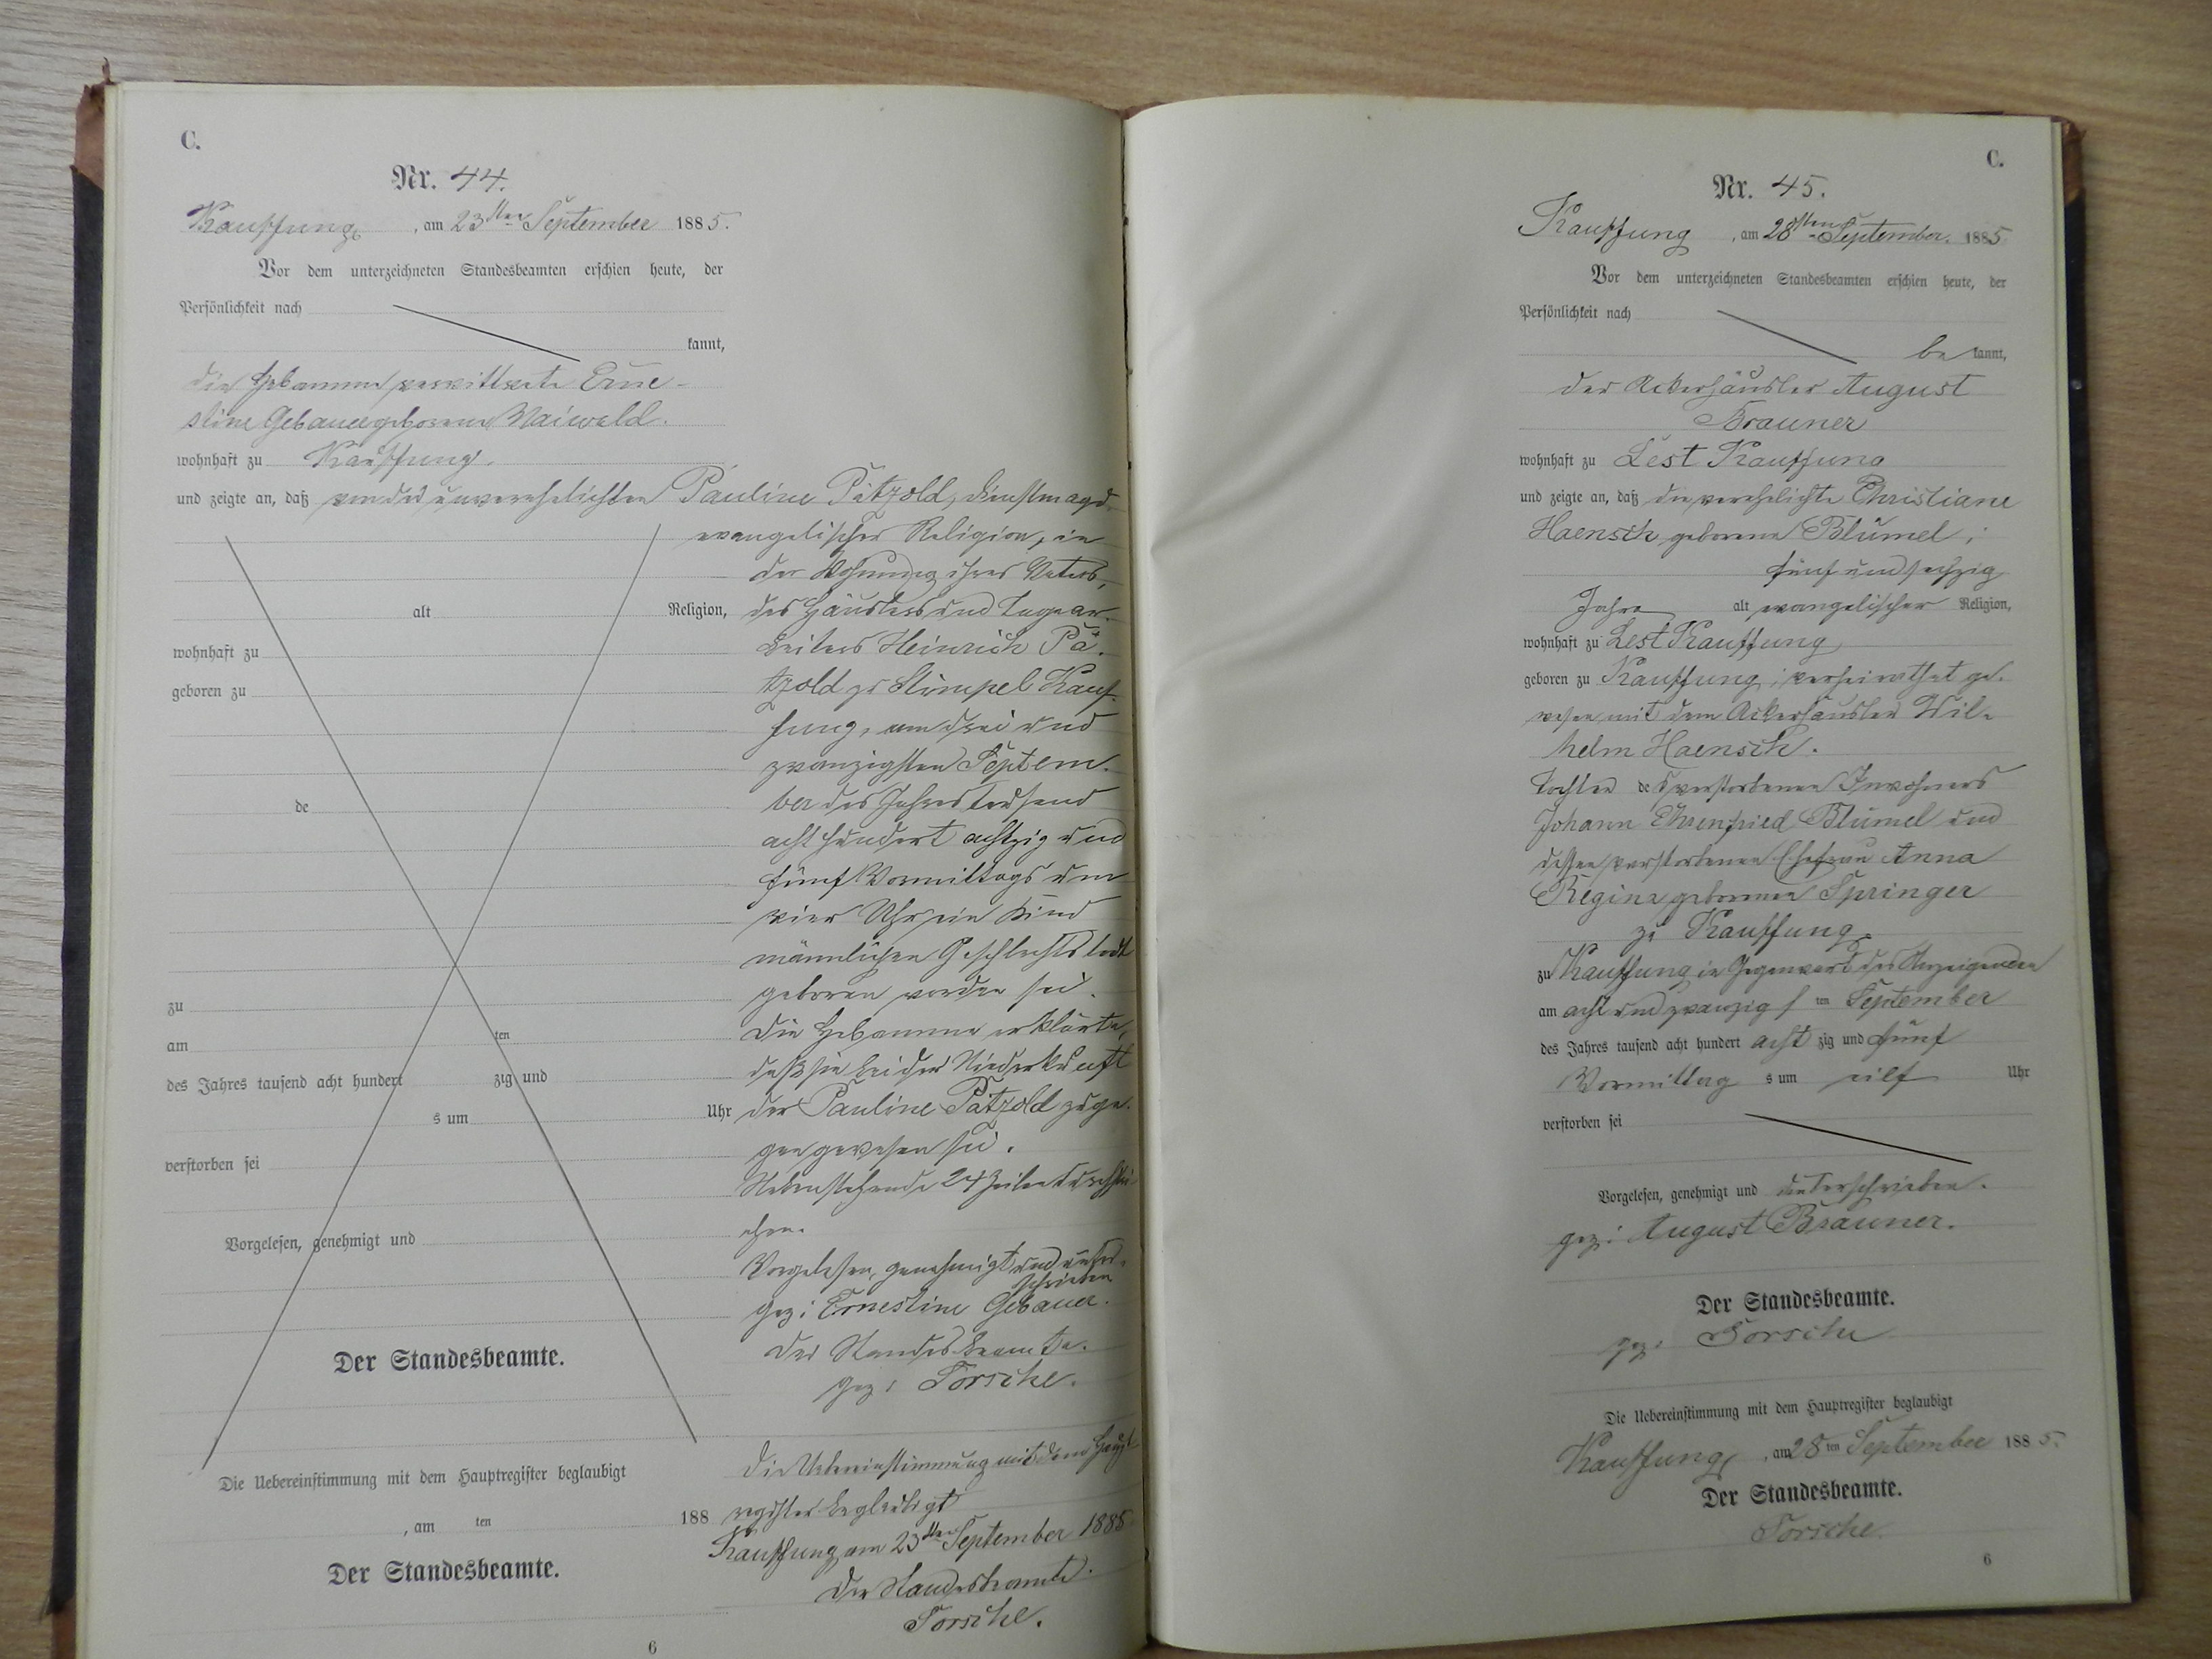 C.
Nr. 44.
Kauffung, am 23ten September 1885.
Vor dem unterzeichneten Standesbeamten erschien heute, der
Persönlichkeit nach
kannt,
die Hebamme verwittwete Erne-
stine Gebauer geborene Maiwald.
wohnhaft zu Kauffung.
und zeigte an, daß von der unverehelichten Pauline Pätzold, Dienstmagd,
evangelischer Religion, in
der Wohnung ihres Vaters,
alt Religion, des Häuslers und Tagear-
wohnhaft zu beiters Heinrich Pä-
geboren zu tzold zu Stimpel Kauf-
fung, am drei und
zwanzigsten Septem-
de ber des Jahres tausend
acht hundert achtzig und
fünf Vormittags um
vier Uhr ein Kind
männlichen Geschlechts todt
zu geboren worden sei.
am ten Die Hebamme erklärte,
des Jahres tausend acht hundert zig und daß sie bei der Niederkunft
s um Uhr der Pauline Pätzold zuge-
verstorben sei gen gewesen sei.
Nebenstehende 24 Zeilen durchstri-
chen.
Vorgelesen, genehmigt und
Vorgelesen, genehmigt und unter-
schrieben
gez: Ernestine Gebauer.
Der Standesbeamte.
Der Standesbeamte.
gez: Forsche.
Die Uebereinstimmung mit dem Hauptregister beglaubigt
Die Uebereinstimmung mit dem Haupt-
, am ten 188
register beglaubigt
Kauffung am 23ten September 1885
Der Standesbeamte.
Der Standesbeamte.
Forsche.
6
C.
Nr. 45.
Kauffung, am 28ten September. 1885
Vor dem unterzeichneten Standesbeamten erschien heute, der
Persönlichkeit nach
be kannt,
der Ackerhäusler August
Brauner
wohnhaft zu Lest Kauffung
und zeigte an, daß die verehelichte Christiane
Haensch geborene Blümel,
fünf und sechzig
Jahre alt evangelischer Religion,
wohnhaft zu Lest Kauffung
geboren zu Kauffung, verheirathet ge-
wesen mit dem Ackerhäusler Wil-
helm Haensch.
Tochter des verstorbenen Inwohners
Johann Ehrenfried Blümel und
dessen verstorbenen Ehefrau Anna
Regina geborenen Springer
zu Kauffung
zu Kauffung in Gegenwart des Anzeigenden
am acht und zwanzigsten September
des Jahres tausend acht hundert acht zig und fünf
Vormittag s um eilf Uhr
verstorben sei
Vorgelesen, genehmigt und unterschrieben.
gez: August Brauner.
Der Standesbeamte.
gez: Forsche
Die Uebereinstimmung mit dem Hauptregister beglaubigt
Kauffung, am 28ten September 1885.
Der Standesbeamte.
Forsche.
6